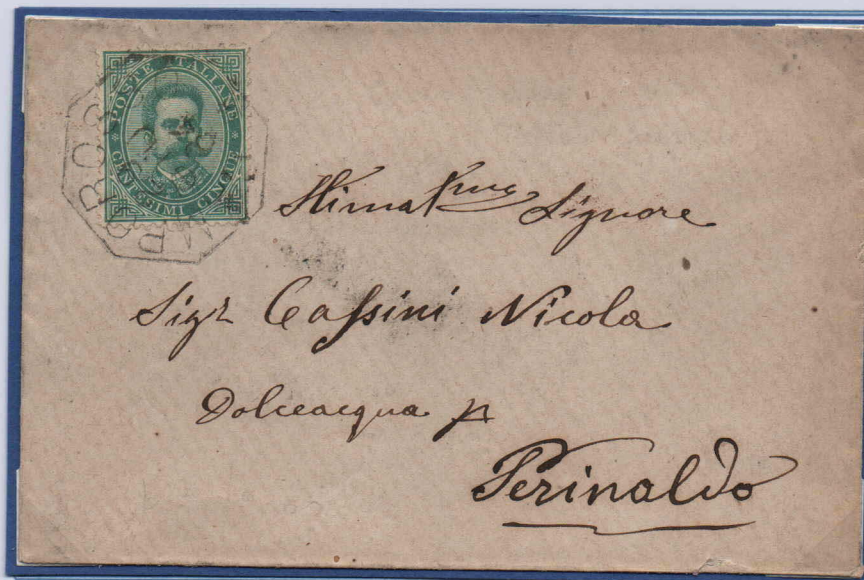 POSTE ITALIANE
CENTESIMI CINQUE
Stima.mo Signore
Sigr Cassini Nicola
Dolceacqua p
Perinaldo